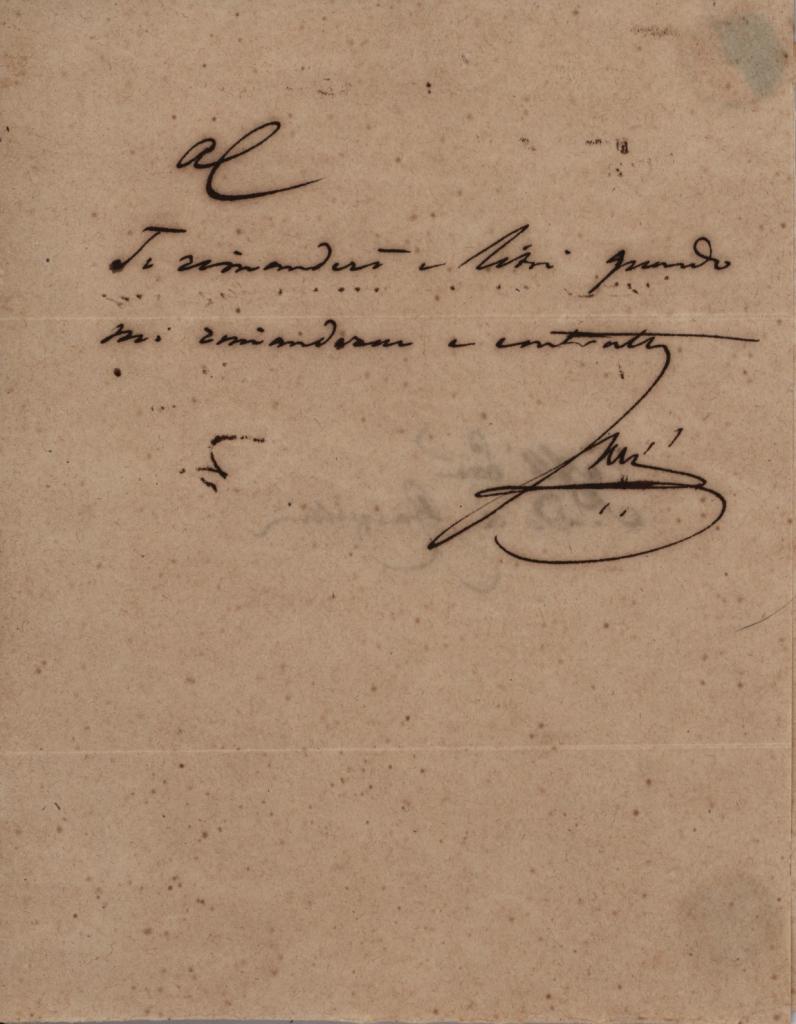 al
Ti rimanderò e libri quando
mi rimanderai e contratti